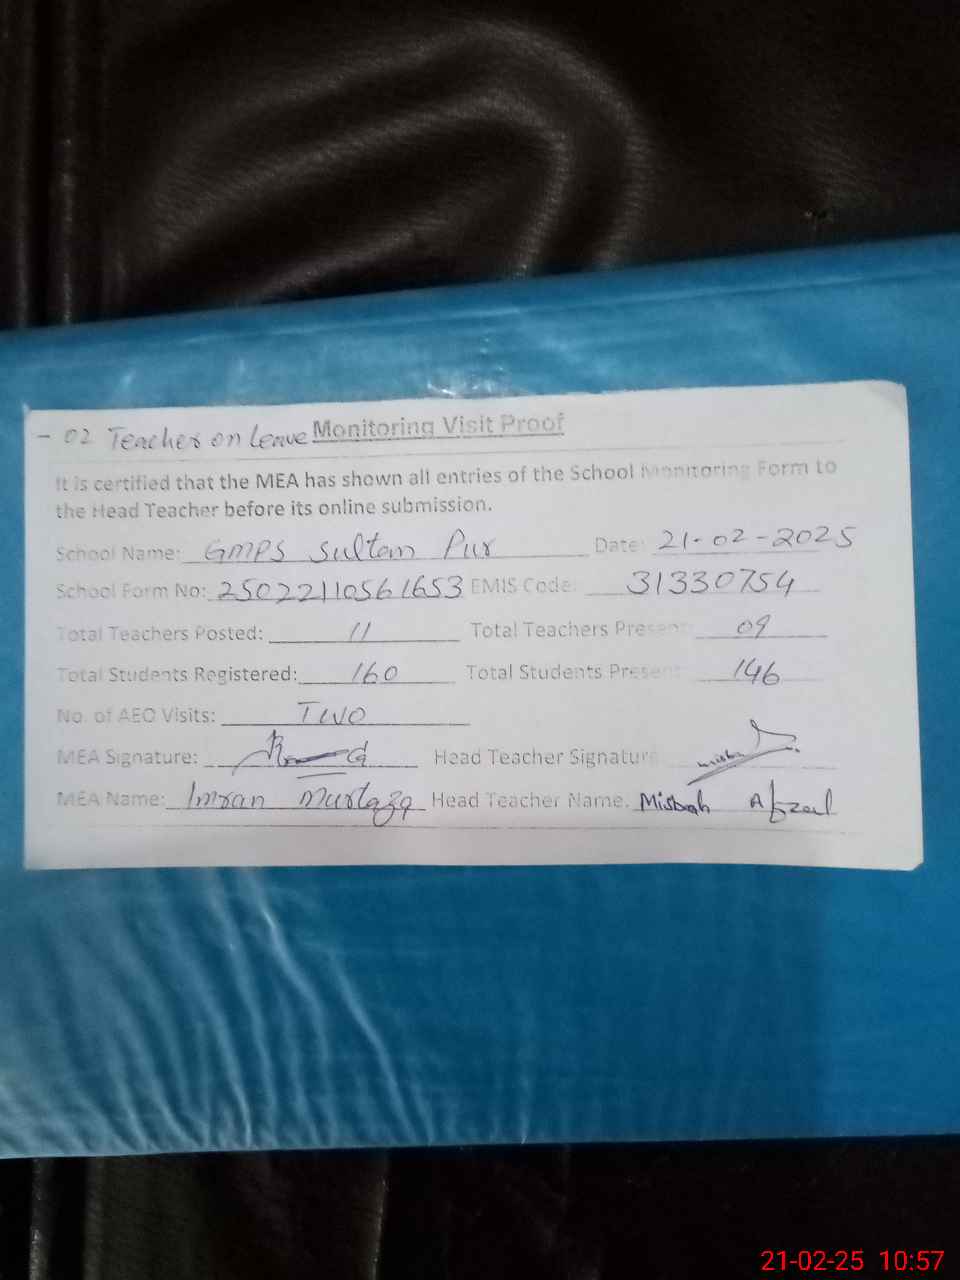 - 02 Teacher on leave Monitoring Visit Proof
It is certified that the MEA has shown all entries of the School Monitoring Form to
the Head Teacher before its online submission.
School Name: GMPS Sultan Pur Date: 21-02-2025
School Form No: 25022110561653 EMIS Code: 31330754
Total Teachers Posted: 11 Total Teachers Present: 09
Total Students Registered: 160 Total Students Present: 146
No. of AEO Visits: Two
MEA Signature: Head Teacher Signature misba
MEA Name: Imran Murtaza Head Teacher Name. Misbah Afzal
21-02-25 10:57